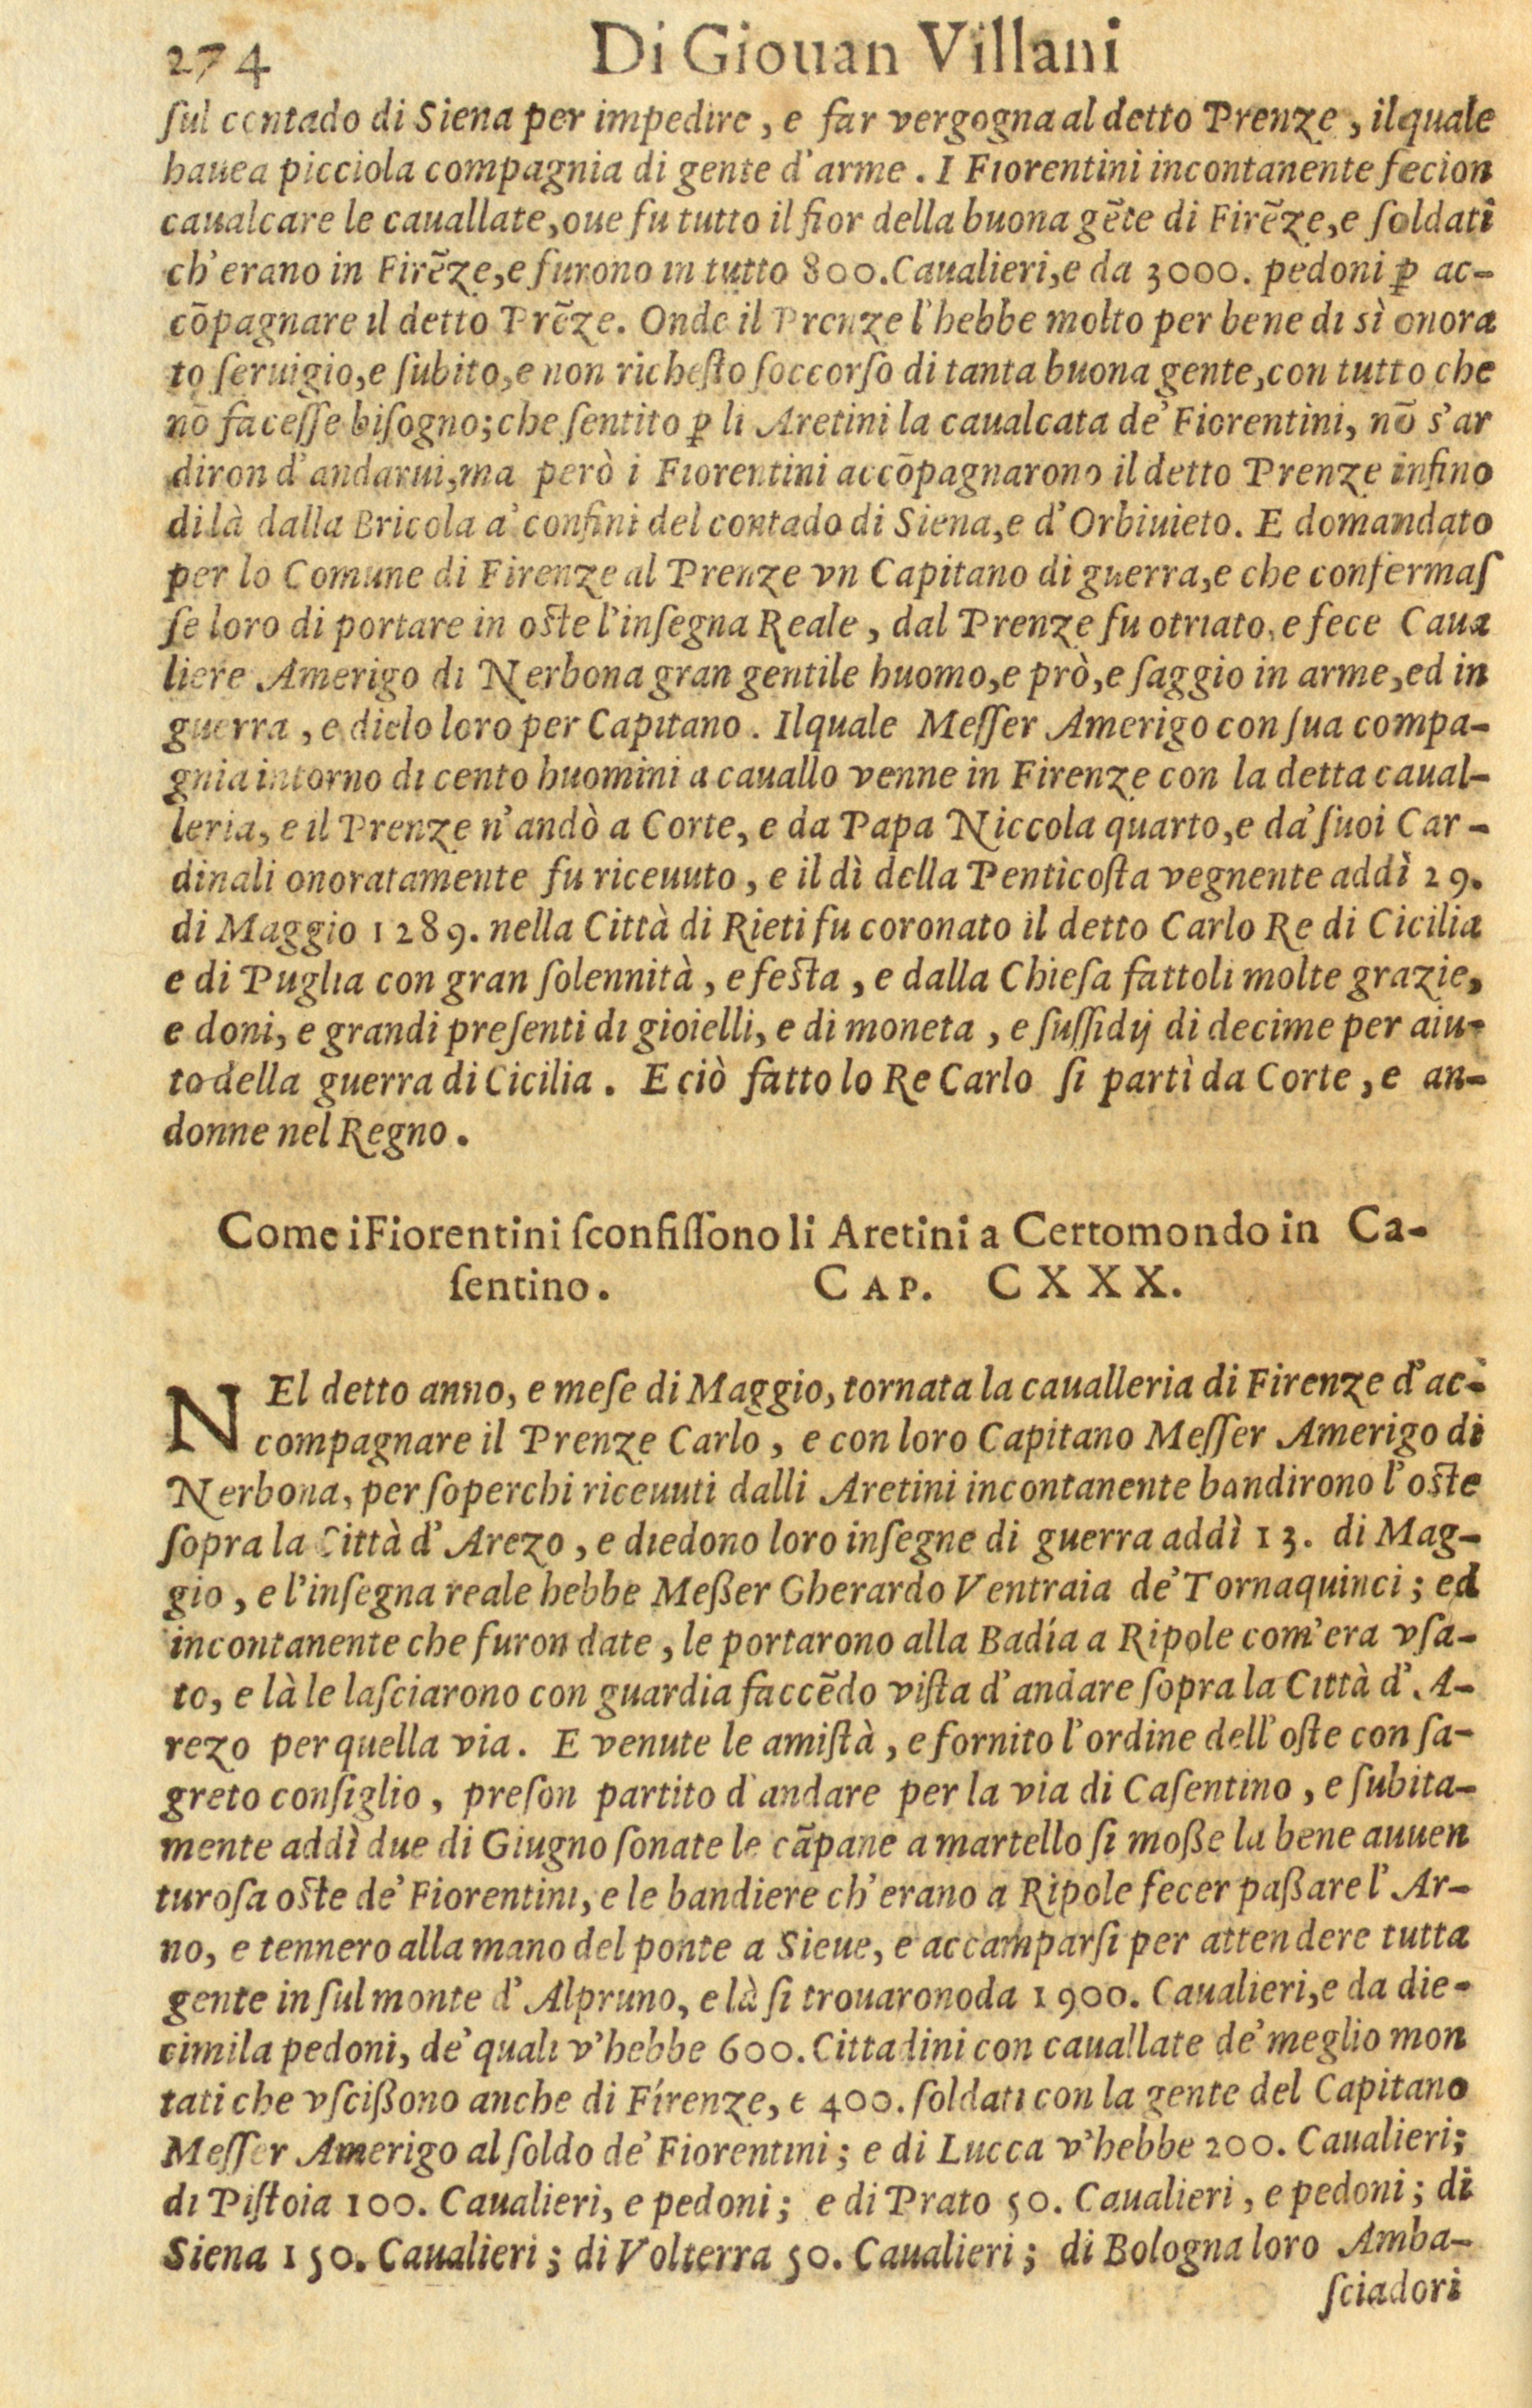 274 Di Giouan Villani
ſul contado di Siena per impedire, e far vergogna al detto Prenze, ilquale
hauea picciola compagnia di gente d'arme. I Fiorentini incontanente fecion
caualcare le cauallate, oue fu tutto il fior della buona gẽte di Firẽze, e ſoldati
ch'erano in Firẽze, e furono in tutto 800. Caualieri, e da 3000. pedoni ꝑ ac-
cõpagnare il detto Prẽze. Onde il Prenze l'hebbe molto per bene di sì onora
to ſeruigio, e ſubito, e non richeſto ſoccorſo di tanta buona gente, con tutto che
nõ faceſſe biſogno; che ſentito ꝑ li Aretini la caualcata de' Fiorentini, nõ s'ar
diron d'andarui, ma però i Fiorentini accõpagnarono il detto Prenze infino
di là dalla Bricola a' confini del contado di Siena, e d'Orbiuieto. E domandato
per lo Comune di Firenze al Prenze vn Capitano di guerra, e che confermaſ
ſe loro di portare in oſte l'inſegna Reale, dal Prenze fu otriato, e fece Caua
liere Amerigo di Nerbona gran gentile huomo, e prò, e ſaggio in arme, ed in
guerra, e dielo loro per Capitano. Ilquale Meſſer Amerigo con ſua compa-
gnia intorno di cento huomini a cauallo venne in Firenze con la detta caual-
leria, e il Prenze n'andò a Corte, e da Papa Niccola quarto, e da' ſuoi Car-
dinali onoratamente fu riceuuto, e il dì della Penticoſta vegnente addì 29.
di Maggio 1289. nella Città di Rieti fu coronato il detto Carlo Re di Cicilia
e di Puglia con gran ſolennità, e feſta, e dalla Chieſa fattoli molte grazie,
e doni, e grandi preſenti di gioielli, e di moneta, e ſuſſidij di decime per aiu-
to della guerra di Cicilia. E ciò fatto lo Re Carlo ſi partì da Corte, e an-
donne nel Regno.
Come i Fiorentini ſconfiſſono li Aretini a Certomondo in Ca-
ſentino. CAP. CXXX.
NEl detto anno, e meſe di Maggio, tornata la caualleria di Firenze d'ac-
compagnare il Prenze Carlo, e con loro Capitano Meſſer Amerigo di
Nerbona, per ſoperchi riceuuti dalli Aretini incontanente bandirono l'oſte
ſopra la Città d'Arezo, e diedono loro inſegne di guerra addì 13. di Mag-
gio, e l'inſegna reale hebbe Meßer Gherardo Ventraia de' Tornaquinci; ed
incontanente che furon date, le portarono alla Badía a Ripole com'era vſa-
to, e là le laſciarono con guardia faccẽdo viſta d'andare ſopra la Città d'A-
rezo per quella via. E venute le amiſtà, e fornito l'ordine dell'oſte con ſa-
greto conſiglio, preſon partito d'andare per la via di Caſentino, e ſubita-
mente addì due di Giugno ſonate le cãpane a martello ſi moße la bene auuen
turoſa oſte de' Fiorentini, e le bandiere ch'erano a Ripole fecer paßare l'Ar-
no, e tennero alla mano del ponte a Sieue, e accamparſi per attendere tutta
gente in ſul monte d'Alpruno, e là ſi trouaronoda 1900. Caualieri, e da die-
cimila pedoni, de' quali v'hebbe 600. Cittadini con cauallate de' meglio mon
tati che vſcißono anche di Fírenze, e 400. ſoldati con la gente del Capitano
Meſſer Amerigo al ſoldo de' Fiorentini; e di Lucca v'hebbe 200. Caualieri;
di Piſtoia 100. Caualieri, e pedoni; e di Prato 50. Caualieri, e pedoni; di
Siena 150. Caualieri; di Volterra 50. Caualieri; di Bologna loro Amba-
ſciadori